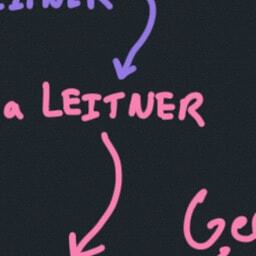 LEITNER
a LEITNER
Ge